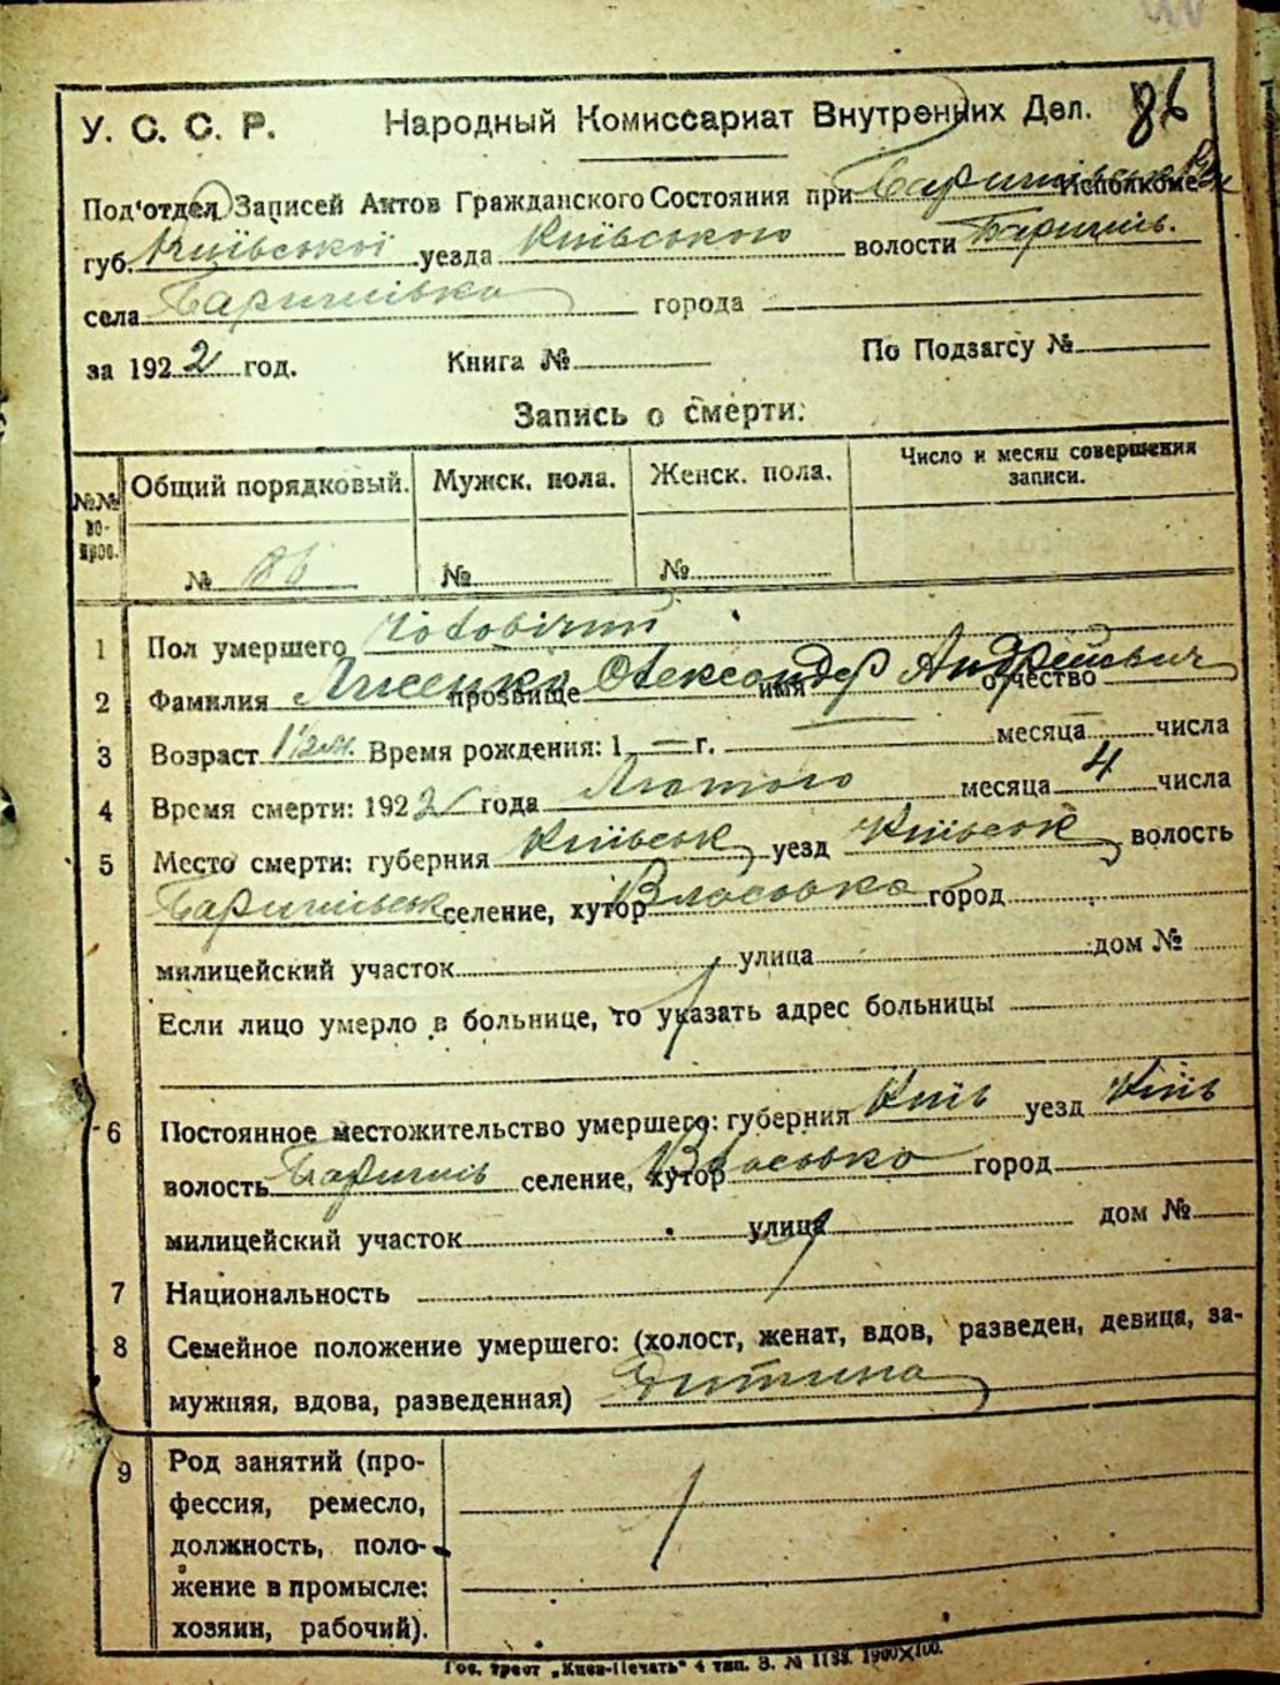 У. С. С. Р. Народный Комиссариат Внутренних Дел. 86
Под'отдел Записей Актов Гражданского Состояния при Исполкоме
губ. Київської уезда Київського волости Баришів.
села Баришівка города
за 1922 год. Книга № По Подзагсу №
Запись о смерти:
№№ вопрос. Общий порядковый. Мужск. пола. Женск. пола. Число и месяц совершения записи.
№ 86 № №
1 Пол умершего чоловічий
2 Фамилия Лисенко прозвище Олександр имя Андрейович отчество
3 Возраст 1½ м. Время рождения: 1 — г. — месяца — числа
4 Время смерти: 1922 года Лютого месяца 4 числа
5 Место смерти: губерния Київськ уезд Київськ волость
Баришівськ селение, хутор Власовка город
милицейский участок улица дом №
Если лицо умерло в больнице, то указать адрес больницы
6 Постоянное местожительство умершего: губерния Київ уезд Київ
волость Баришів селение, хутор Власовка город
милицейский участок улица дом №
7 Национальность
8 Семейное положение умершего: (холост, женат, вдов, разведен, девица, за-
мужняя, вдова, разведенная) Дитина
9 Род занятий (про-
фессия, ремесло,
должность, поло-
жение в промысле:
хозяин, рабочий).
Гос. трест „Киев-Печать" 4 тип. З. № 1138. 1900×100.